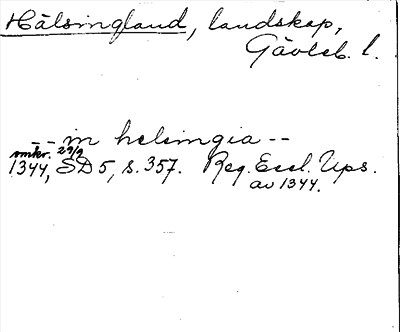 Hälsingland, landskap,
Gävleb. l.
-- in helsingia --
omkr. 29/9
1344, SD 5, s. 357. Reg. Eccl. Ups.
av 1344.